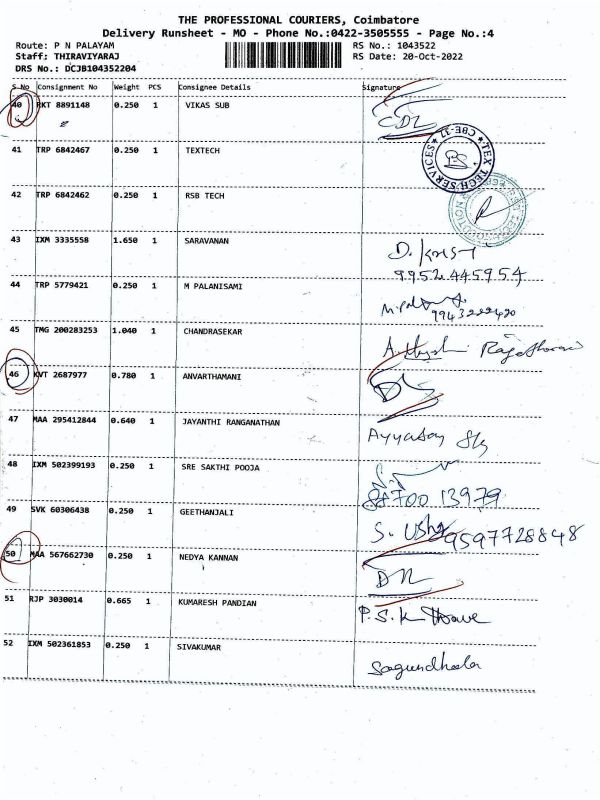 THE PROFESSIONAL COURIERS, Coimbatore
Delivery Runsheet - MO - Phone No.:0422-3505555 - Page No.:4
Route: P N PALAYAM RS No.: 1043522
Staff: THIRAVIYARAJ RS Date: 20-Oct-2022
DRS No.: DCJB104352204
S No Consignment No Weight PCS Consignee Details Signature
40 RKT 8891148 0.250 1 VIKAS SUB
41 TRP 6842467 0.250 1 TEXTECH
TEX TECH SERVICES CBE-11
42 TRP 6842462 0.250 1 RSB TECH
43 IXM 3335558 1.650 1 SARAVANAN
9952445954
44 TRP 5779421 0.250 1 M PALANISAMI
9943222420
45 TMG 200283253 1.040 1 CHANDRASEKAR
46 KVT 2687977 0.780 1 ANVARTHAMANI
47 MAA 295412844 0.640 1 JAYANTHI RANGANATHAN
48 IXM 502399193 0.250 1 SRE SAKTHI POOJA
13979
49 SVK 60306438 0.250 1 GEETHANJALI
S. Usha 9597728848
50 MAA 567662730 0.250 1 NEDYA KANNAN
51 RJP 3030014 0.665 1 KUMARESH PANDIAN
52 IXM 502361853 0.250 1 SIVAKUMAR